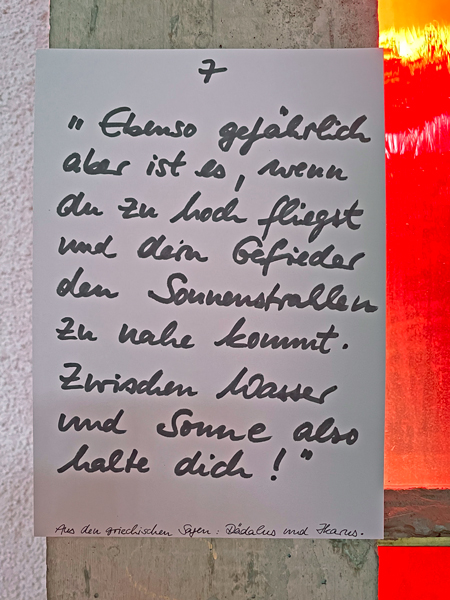 7
„ Ebenso gefährlich
aber ist es, wenn
du zu hoch fliegst
und dein Gefieder
den Sonnenstrahlen
zu nahe kommt.
Zwischen Wasser
und Sonne also
halte dich! "
Aus den griechischen Sagen: Dädalus und Ikarus.